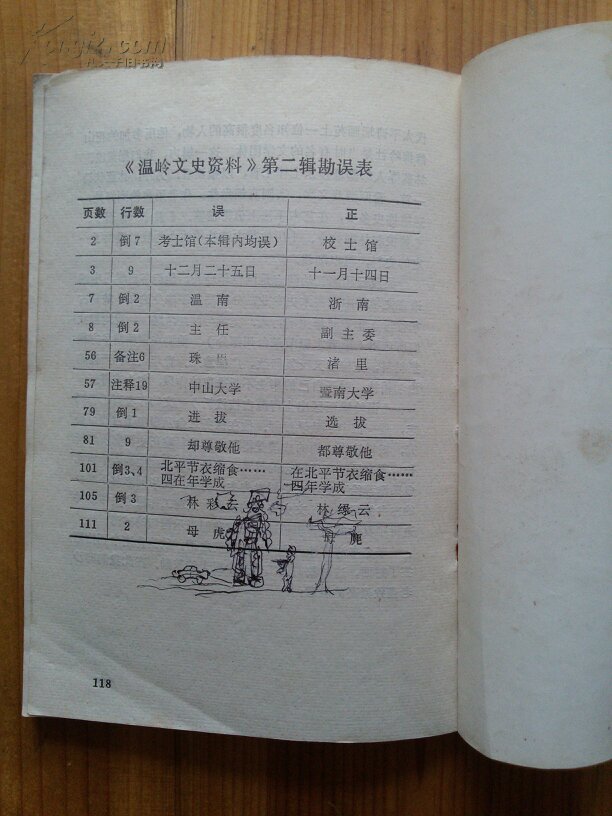 《温岭文史资料》第二辑勘误表
页数 行数 误 正
2 倒7 考士馆(本辑内均误) 校士馆
3 9 十二月二十五日 十一月十四日
7 倒2 温南 浙南
8 倒2 主任 副主委
56 备注6 珠 渚里
57 注释19 中山大学 暨南大学
79 倒1 进拔 选拔
81 9 却尊敬他 都尊敬他
101 倒3、4 北平节衣缩食…… 在北平节衣缩食……
四在年学成 四年学成
105 倒3 林彩云 林缦云
111 2 母虎 母
118